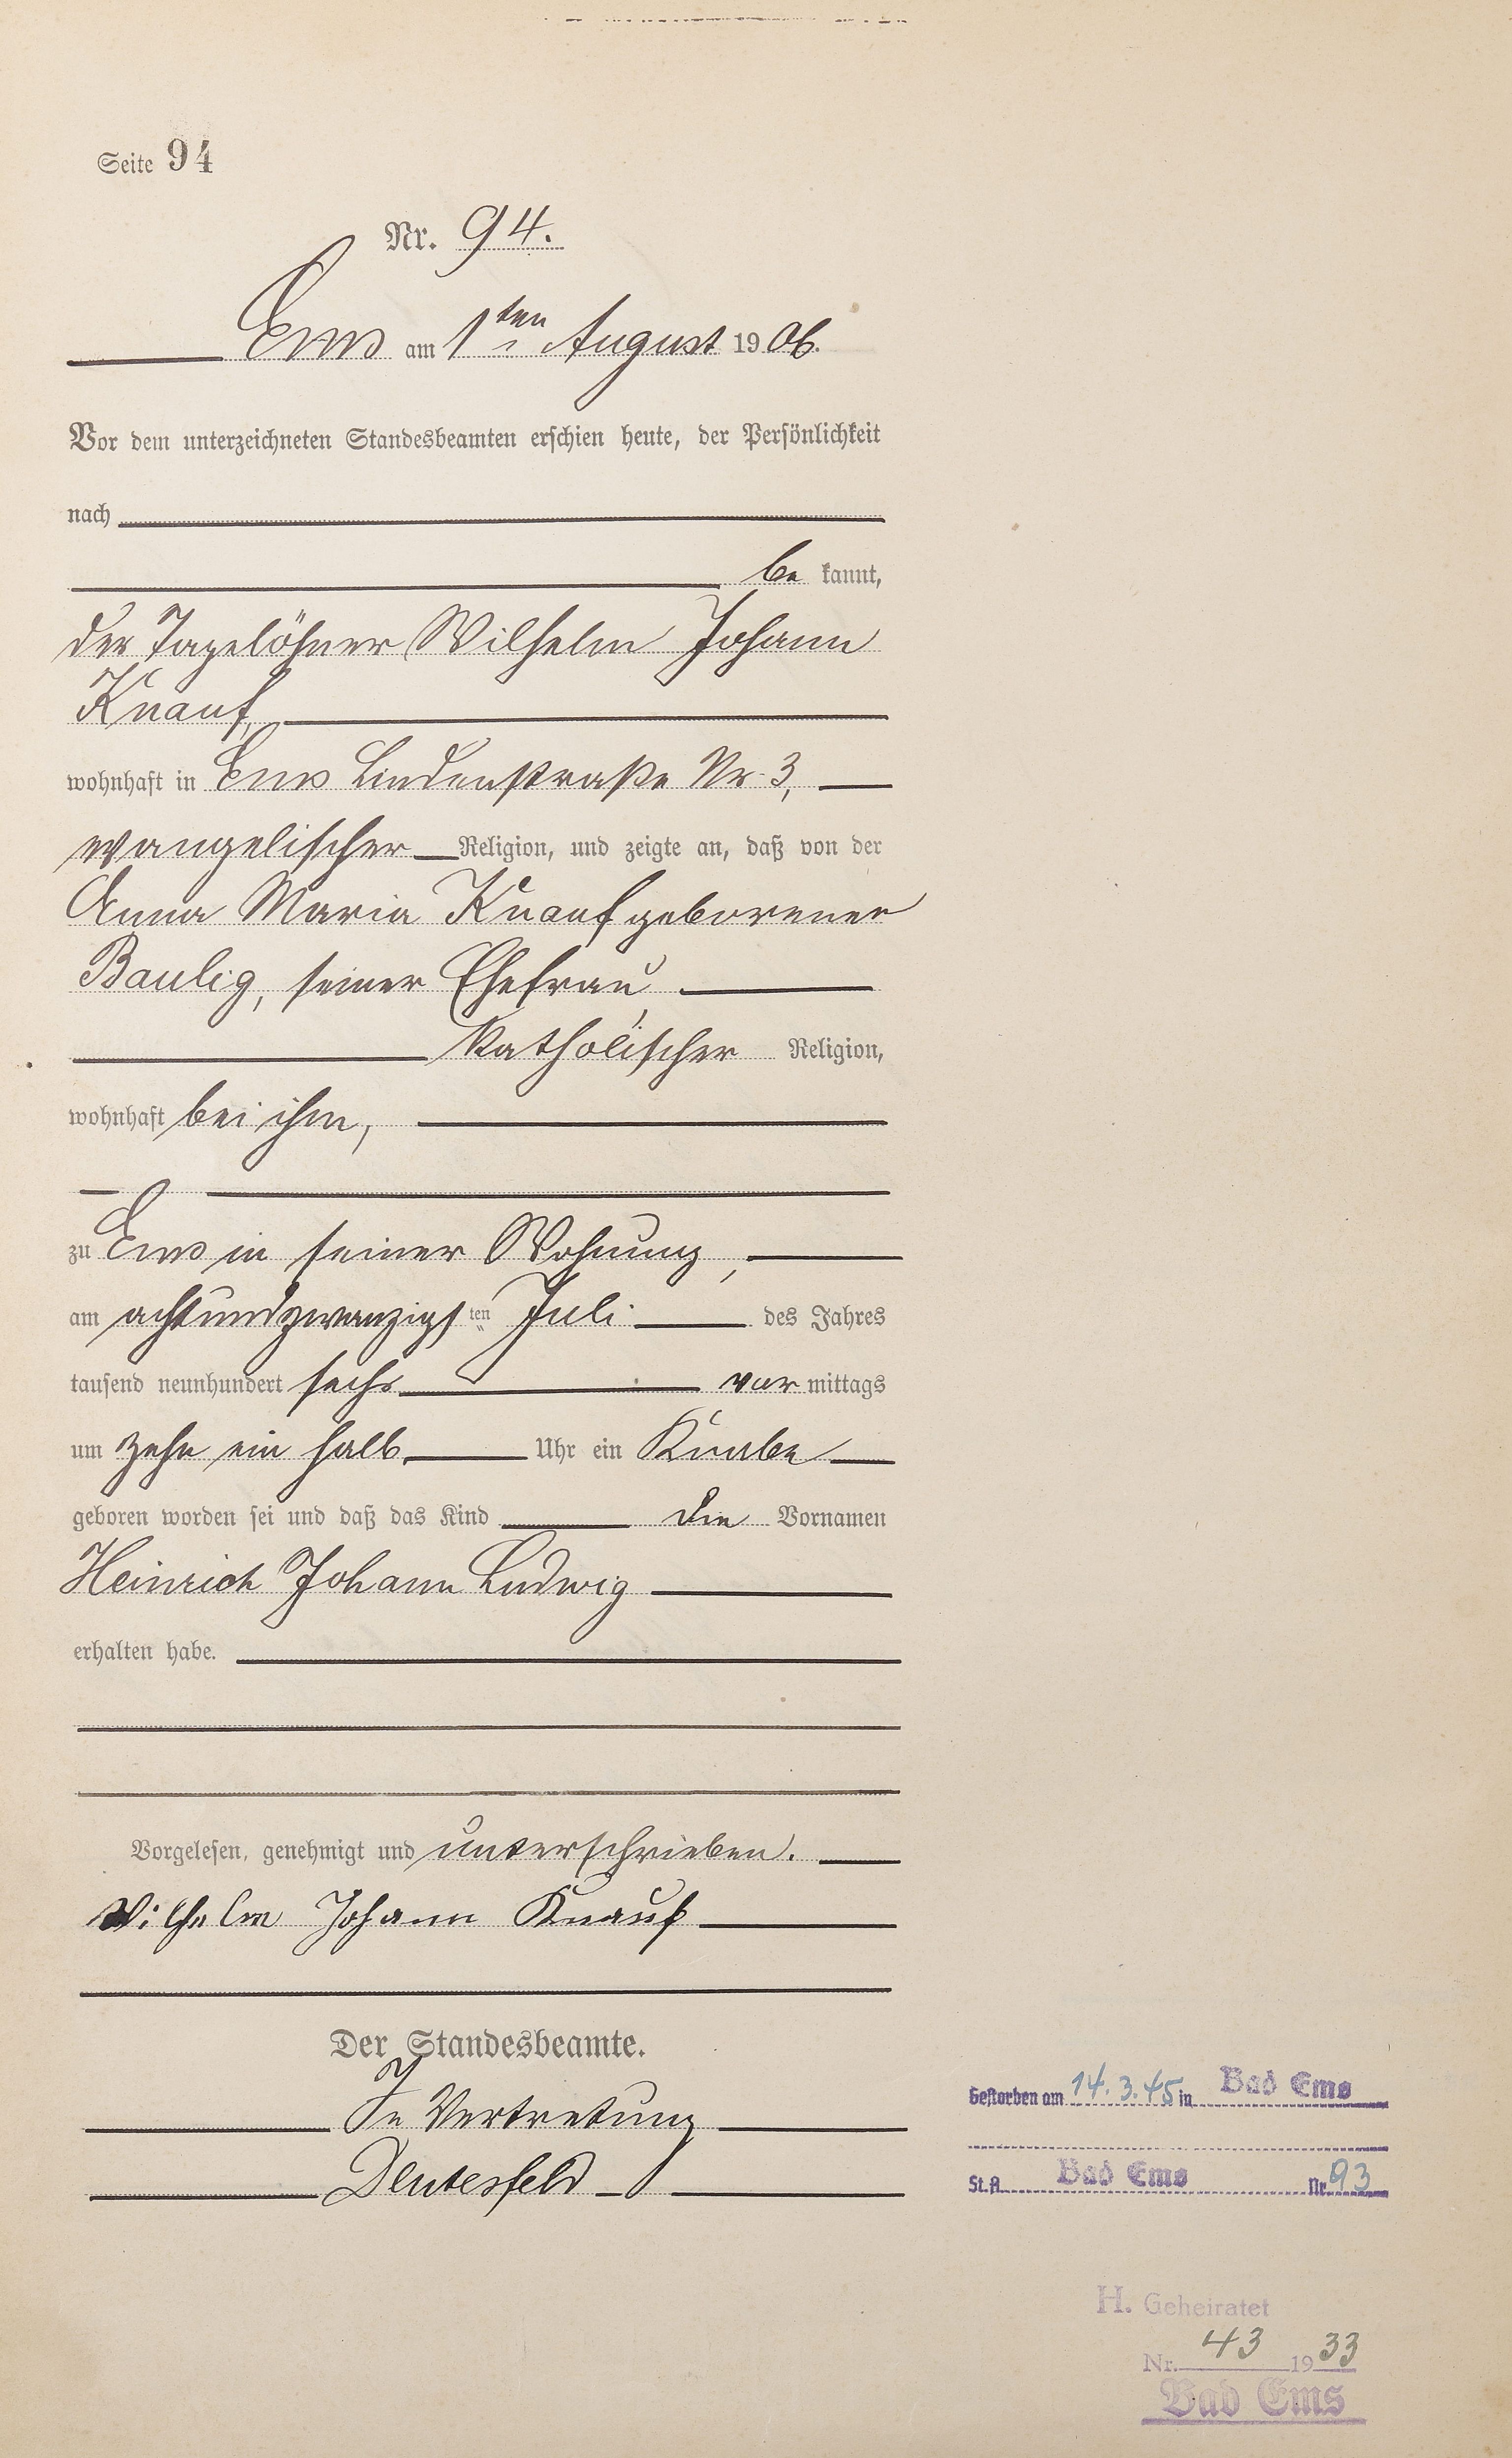 Seite 94
Nr. 94.
Ems am 1ten August 1906.
Vor dem unterzeichneten Standesbeamten erschien heute, der Persönlichkeit
nach
be kannt,
der Tagelöhner Wilhelm Johann
Knauf,
wohnhaft in Ems Lindenstraße Nr. 3,
evangelischer Religion, und zeigte an, daß von der
Anna Maria Knauf geborener
Baulig, seiner Ehefrau,
katholischer Religion,
wohnhaft bei ihm,
zu Ems in seiner Wohnung,
am achtundzwanzigsten Juli des Jahres
tausend neunhundert sechs vor mittags
um zehn ein halb Uhr ein Knabe
geboren worden sei und daß das Kind die Vornamen
Heinrich Johann Ludwig
erhalten habe.
Vorgelesen, genehmigt und unterschrieben.
Wilhelm Johann Knauf
Der Standesbeamte.
In Vertretung
Gestorben am 14.3.45 in Bad Ems
St.A. Bad Ems Nr. 93
H. Geheiratet
Nr. 43 1933
Bad Ems